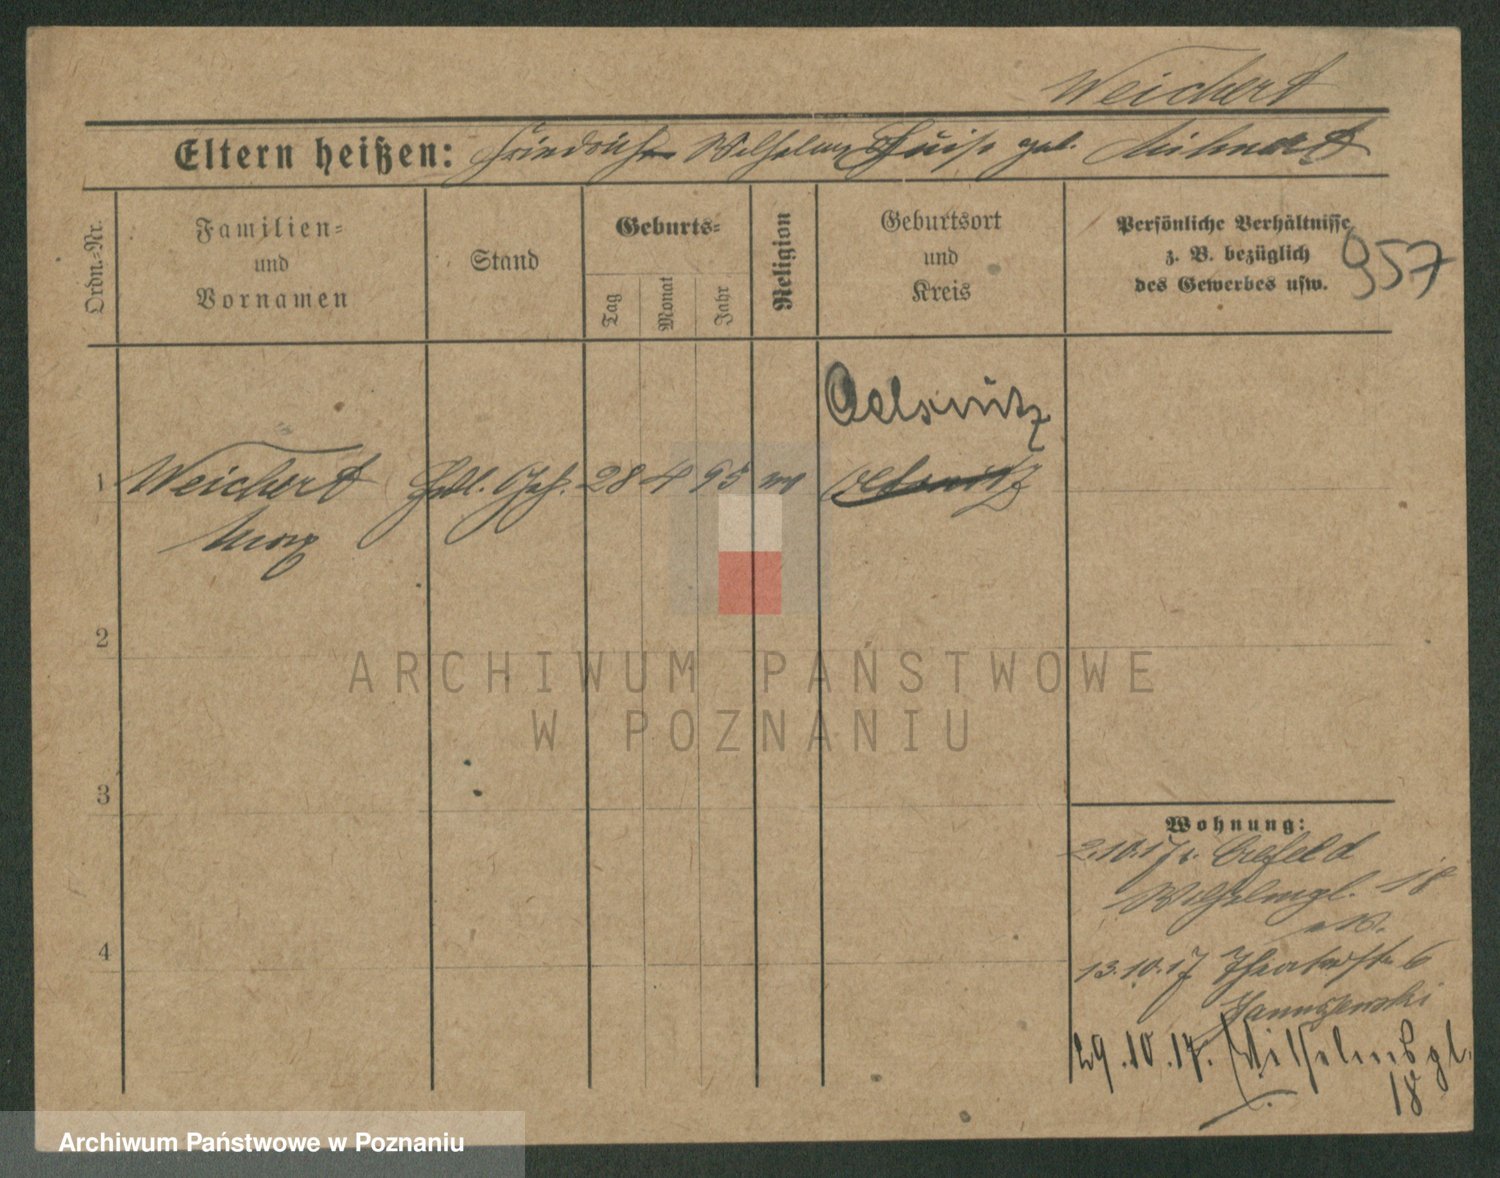 Weichert
Eltern heißen: Friedrich Wilhelm Luise geb.
Ordn.-Nr.
Familien-
und
Vornamen
Stand
Geburts-
Tag
Monat
Jahr
Religion
Geburtsort
und
Kreis
Persönliche Verhältnisse
z. B. bezüglich
des Gewerbes usw.
957
Oelsnitz
1 Weichert Hdl. Geh. 28 4 95 Oelsnitz
Max
2
3
4
ARCHIWUM PAŃSTWOWE
W POZNANIU
Wohnung:
2.10.17 v. Crefeld
Wilhelmspl. 18
13.10.17 Theaterstr. 6
Januszewski
29.10.17. Wilhelmspl.
18
Archiwum Państwowe w Poznaniu